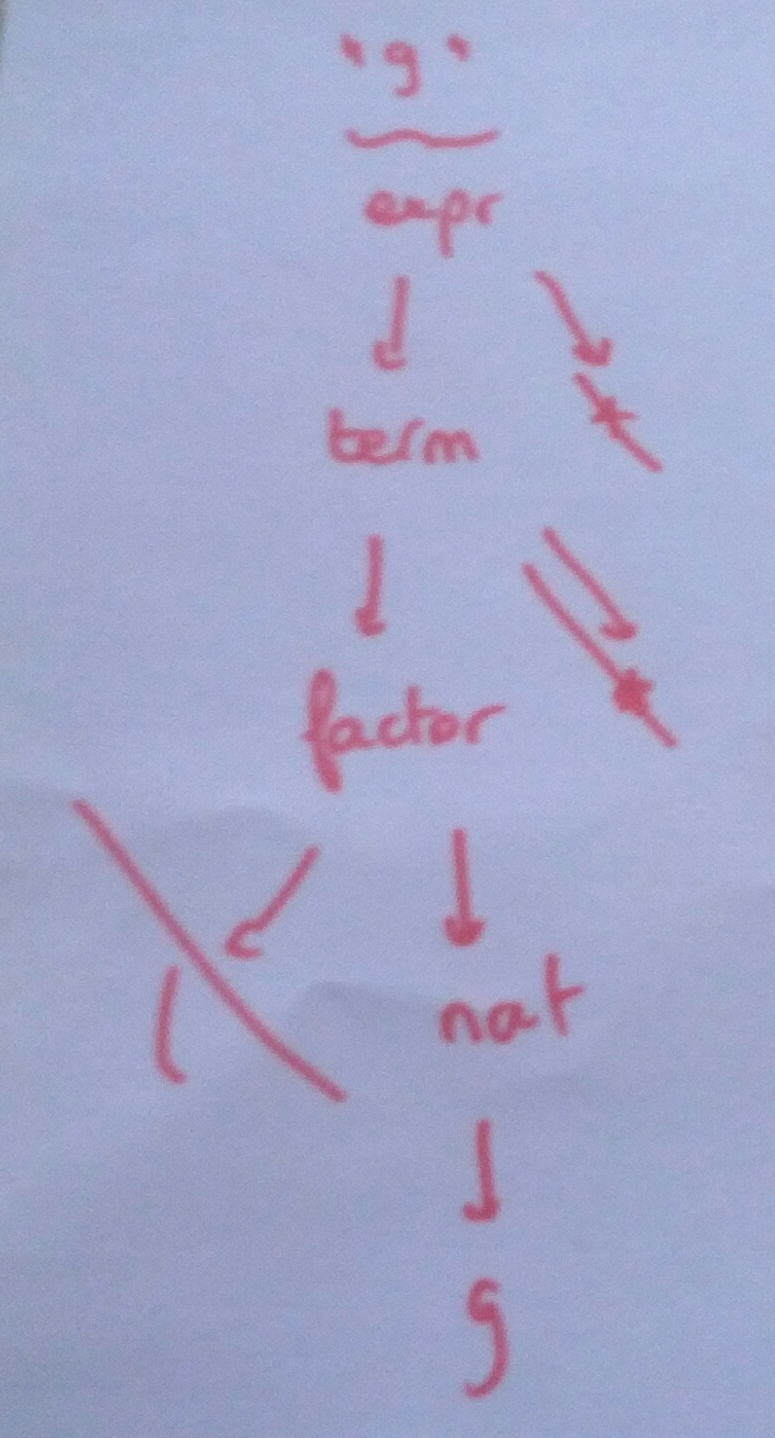 "9"
expr
term
factor
(
nat
9